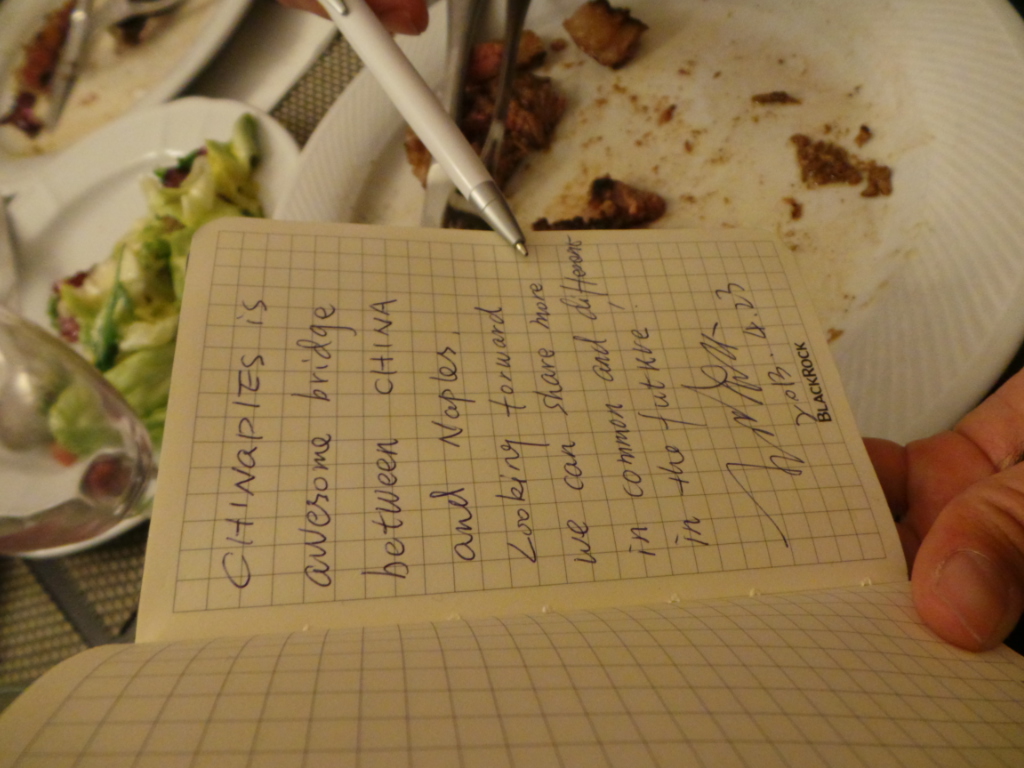 CHINAPIES is
awesome bridge
between CHINA
and Naples,
Looking forward
we can share more
in common and different
in the future!
2013.4.23
BLACKROCK